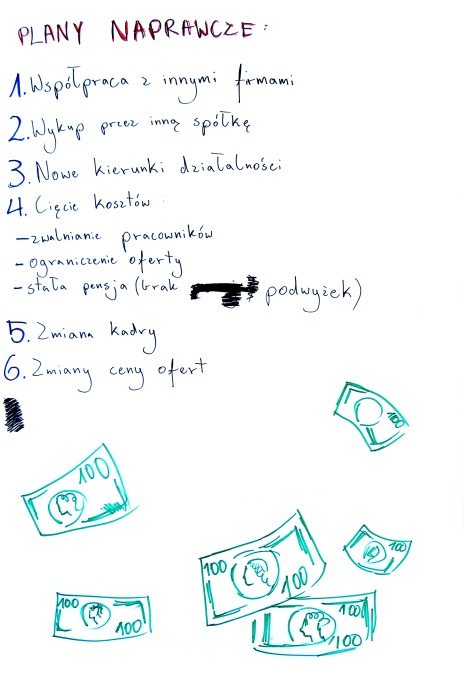 PLANY NAPRAWCZE:
1. Współpraca z innymi firmami
2. Wykup przez inną spółkę
3. Nowe kierunki działalności
4. Cięcie kosztów
- zwalnianie pracowników
- ograniczenie oferty
- stała pensja (brak podwyżek)
5. Zmiana kadry
6. Zmiany ceny ofert
100
100
100
100 100
100
100 100
100 100